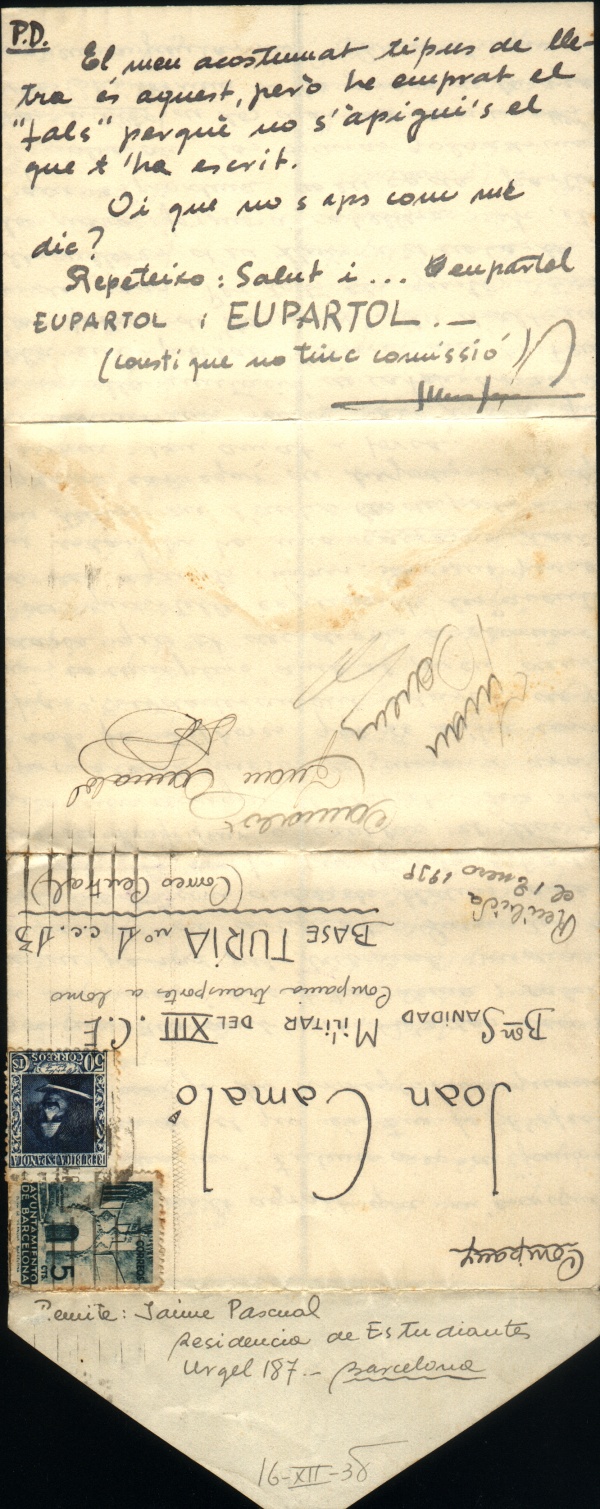 P.D.
El meu acostumat tipus de lle-
tra és aquest, però he emprat el
"fals" perquè no s'àpigui's el
que t'ha escrit.
Oi que no saps com me
dic?
Repeteixo: Salut i... eupartol
EUPARTOL i EUPARTOL.—
(consti que no tinc comissió)
Juan
Juan Camaló
Camaló
Recibida
el 1 Enero 1939
(Correo Central)
BASE TURIA nº 1 c.c. 13
Compañia transporte a lomo
Bon SANIDAD MILITAR DEL XIII. C.E
Joan Camaló
Company
50 CTS
CORREOS
REPÚBLICA ESPAÑOLA
AYUNTAMIENTO
DE BARCELONA
5 CTS
CORREOS
Remite: Jaime Pascual
Residencia de Estudiantes
Urgel 187.- Barcelona
16-XII-38